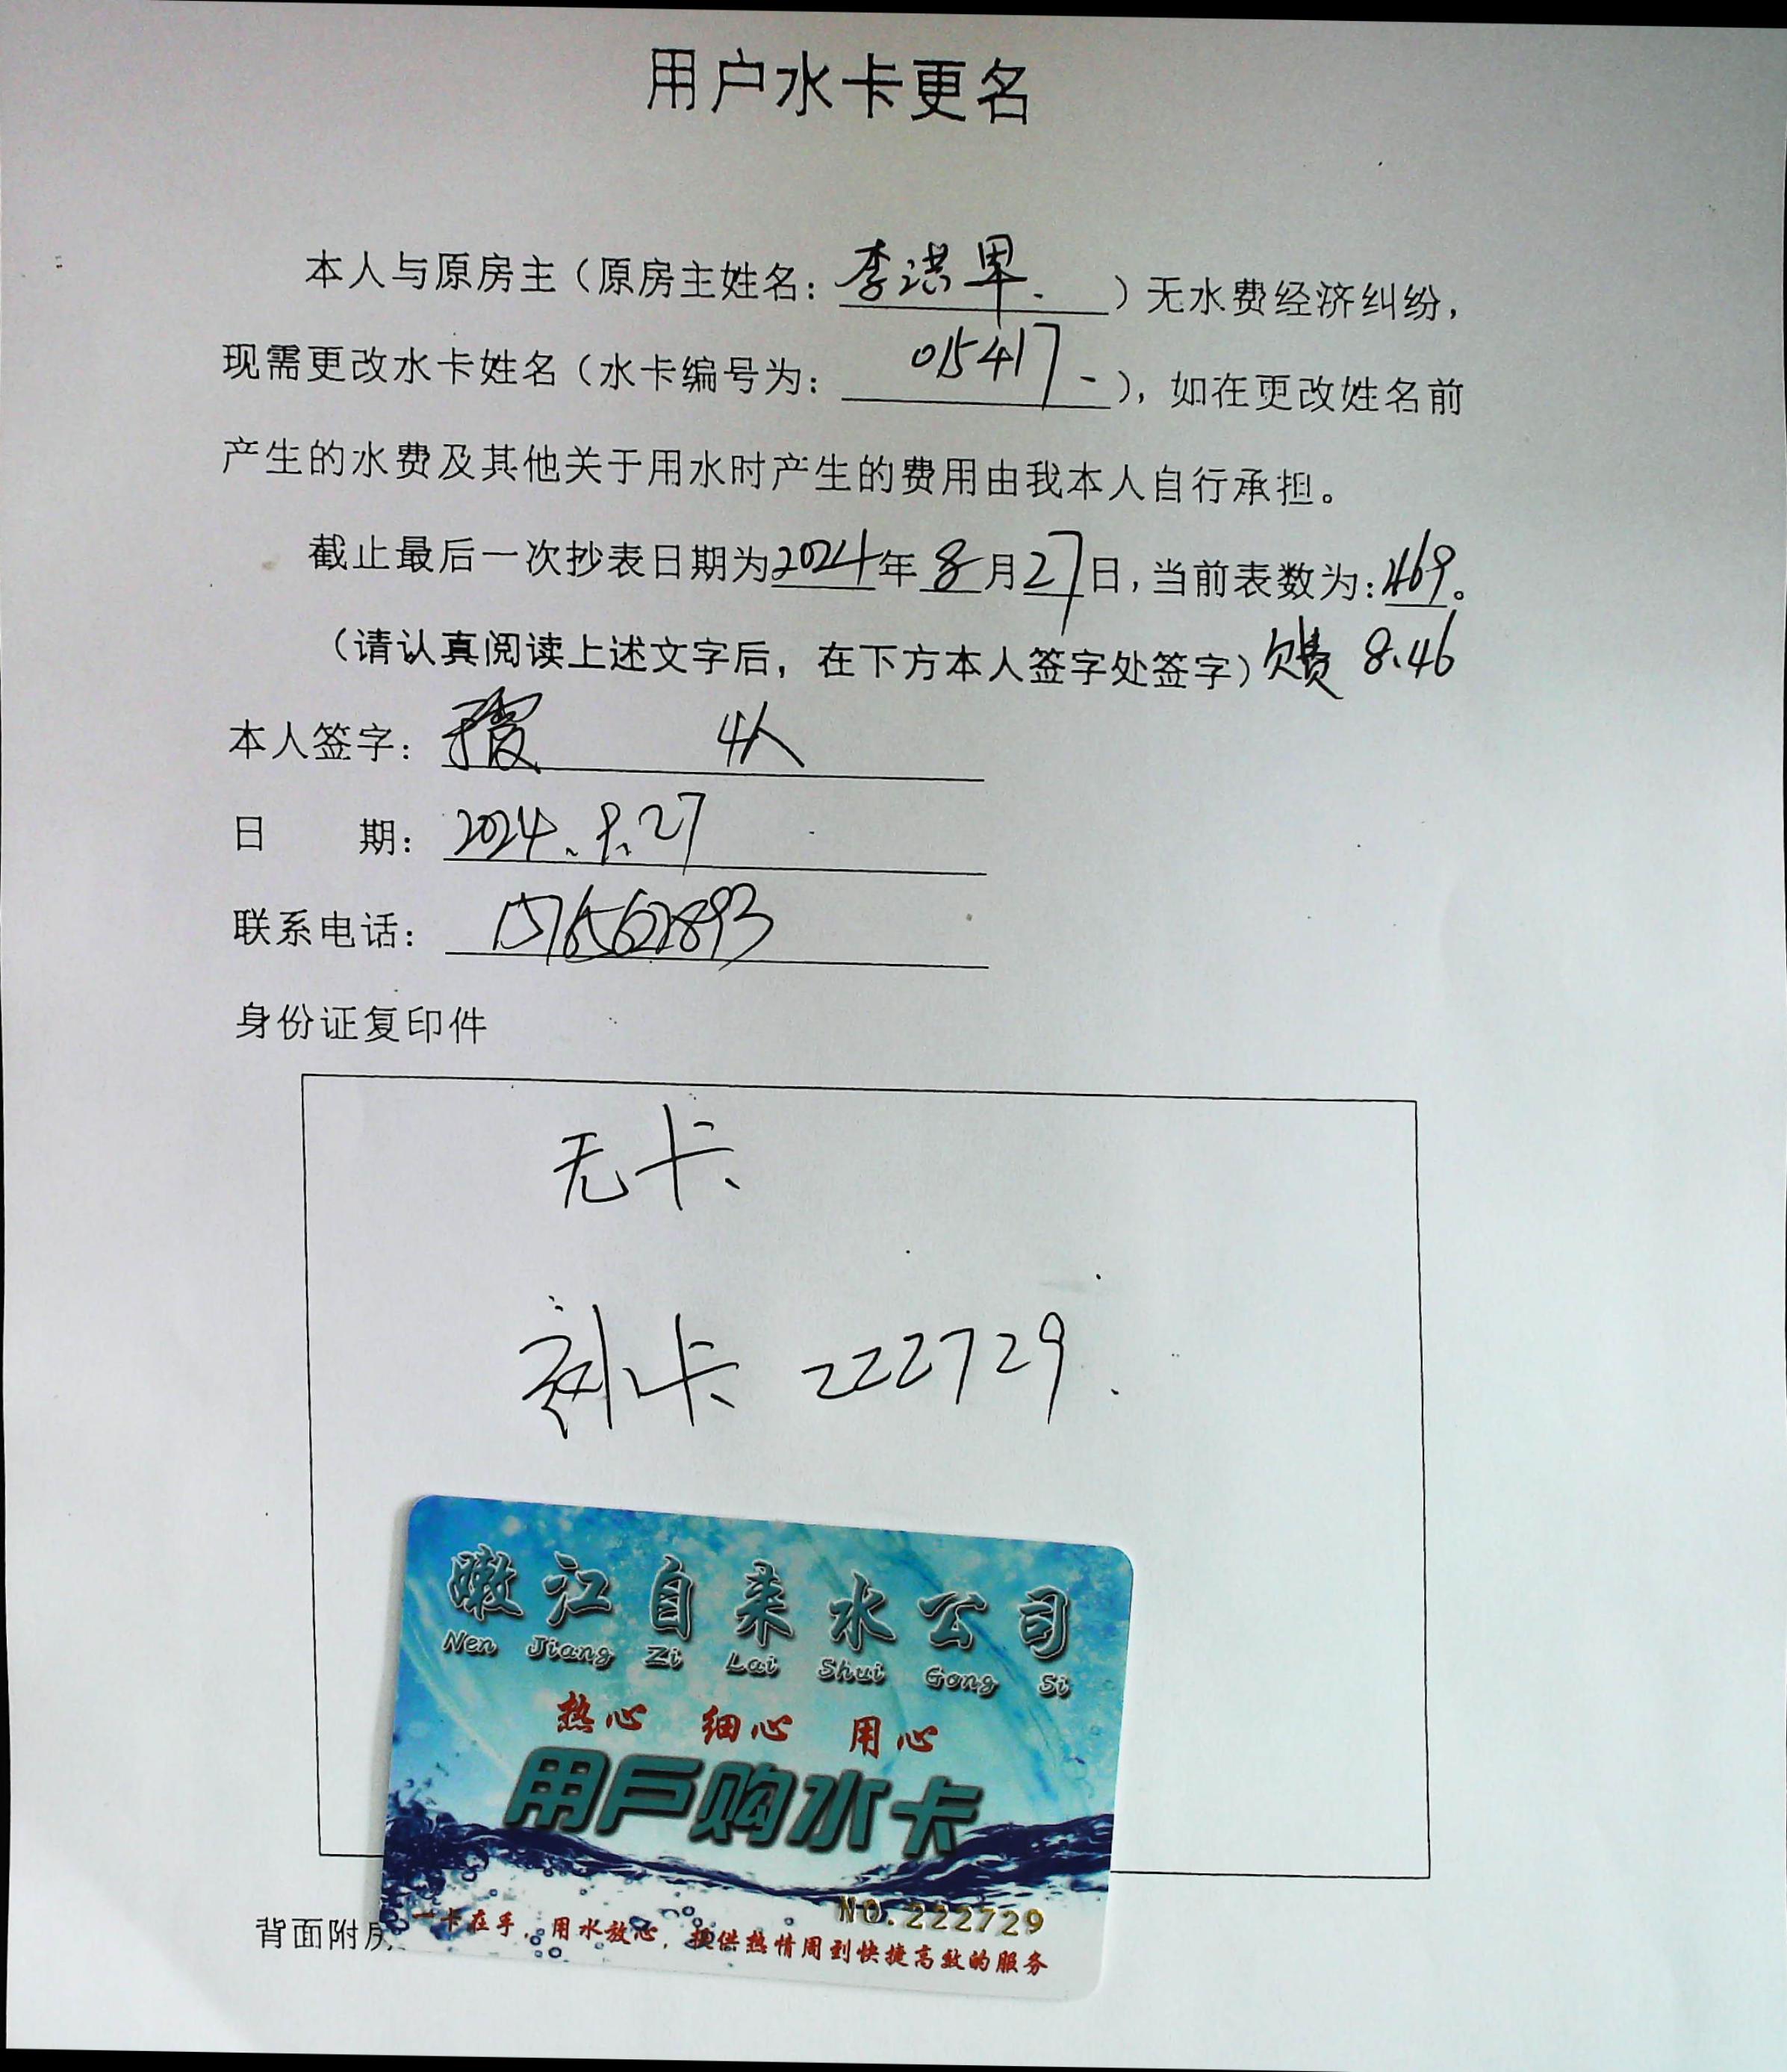 用户水卡更名
本人与原房主（原房主姓名：李洪果）无水费经济纠纷，
现需更改水卡姓名（水卡编号为：015417），如在更改姓名前
产生的水费及其他关于用水时产生的费用由我本人自行承担。
截止最后一次抄表日期为2024年8月27日，当前表数为：469。
（请认真阅读上述文字后，在下方本人签字处签字）欠费 8.46
本人签字： 4人
日 期：2024.8.27
联系电话：
身份证复印件
无卡
新卡 222729
嫩江自来水公司
Nen Jiang Zi Lai Shui Gong Si
热心 细心 用心
用户购水卡
NO.222729
一卡在手，用水放心，提供热情周到快捷高效的服务
背面附房